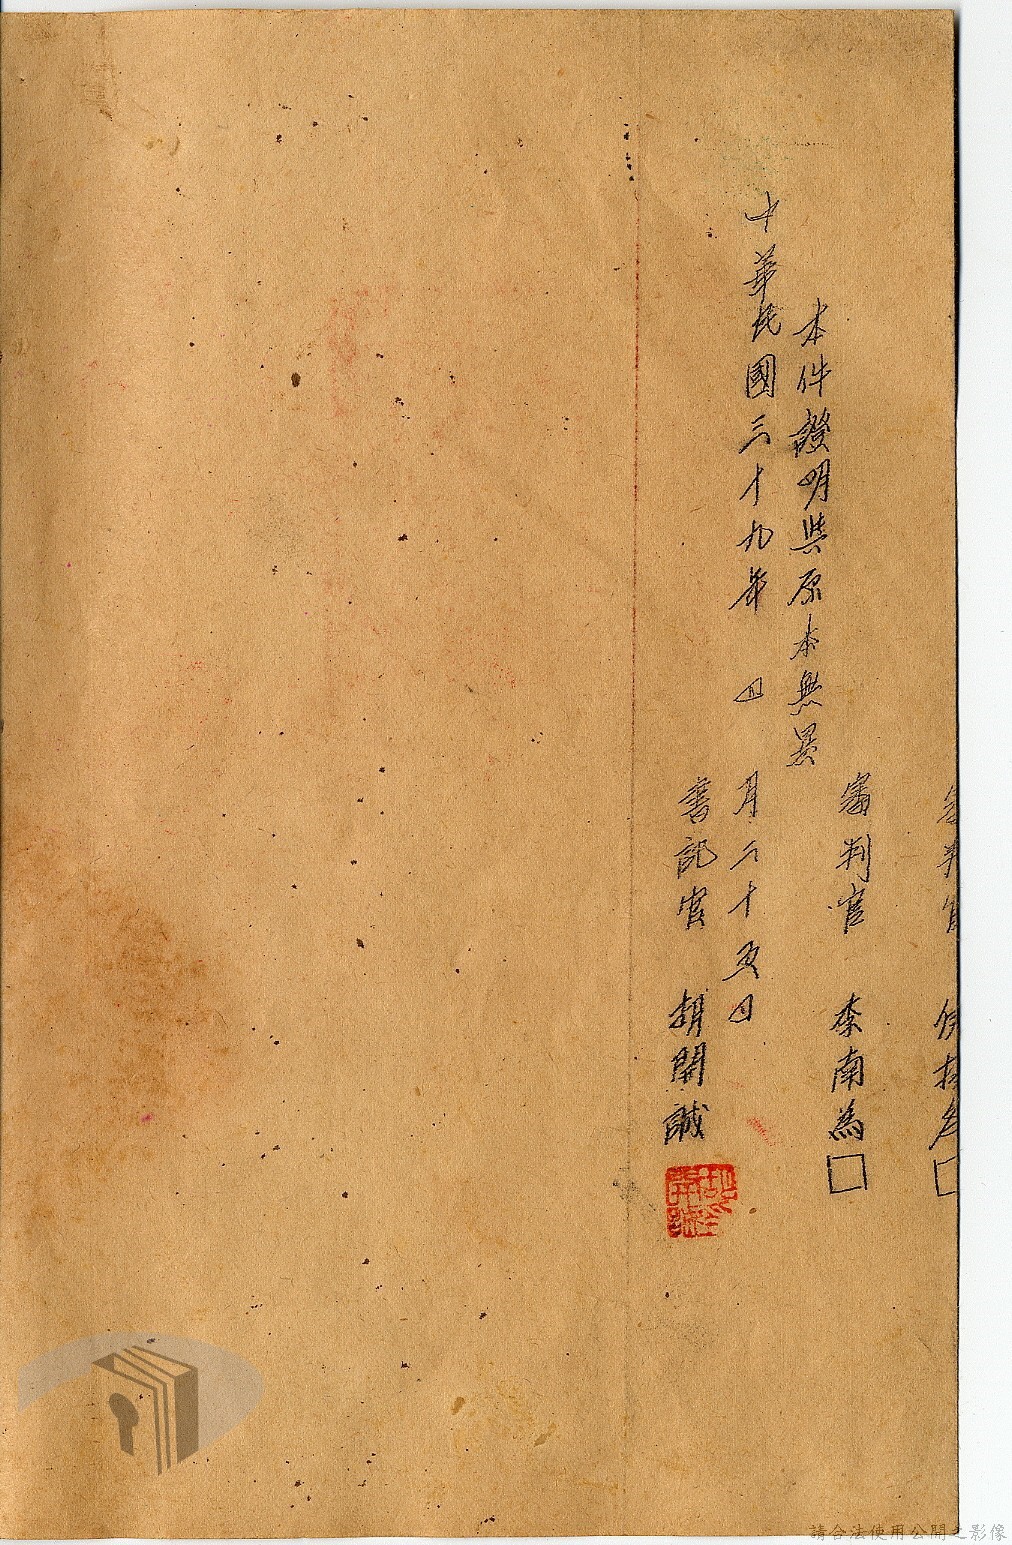 審判官
審判官　李南為□
本件證明與原本無異
中華民國三十九年　四　月二十五日
書記官　胡開誠
請合法使用公開之影像